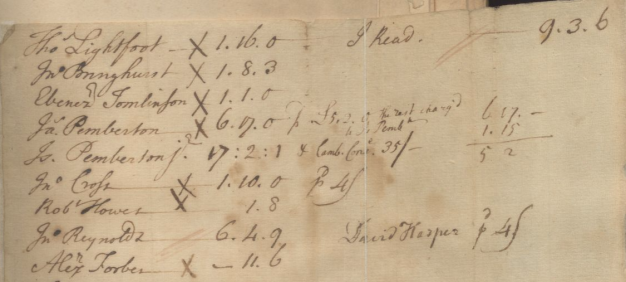 Thos Lightfoot — X 1.16.0 J Read. 9.3.6
Jno Bringhurst X 1.8.3
Ebenezr Tomlinson X 1.1.0
Ja. Pemberton X 6.17.0 p the rest charg'd 6.17.–
Is. Pemberton jr. 17:2:1 & 35/– 1.15
5 2
Jno Cross X 1.10.0 pd 4/
Robt Howes X 1.8
Jno Reynolds 6.4.9 David Harper pd 4/
Alexr Forbes X – 11.6